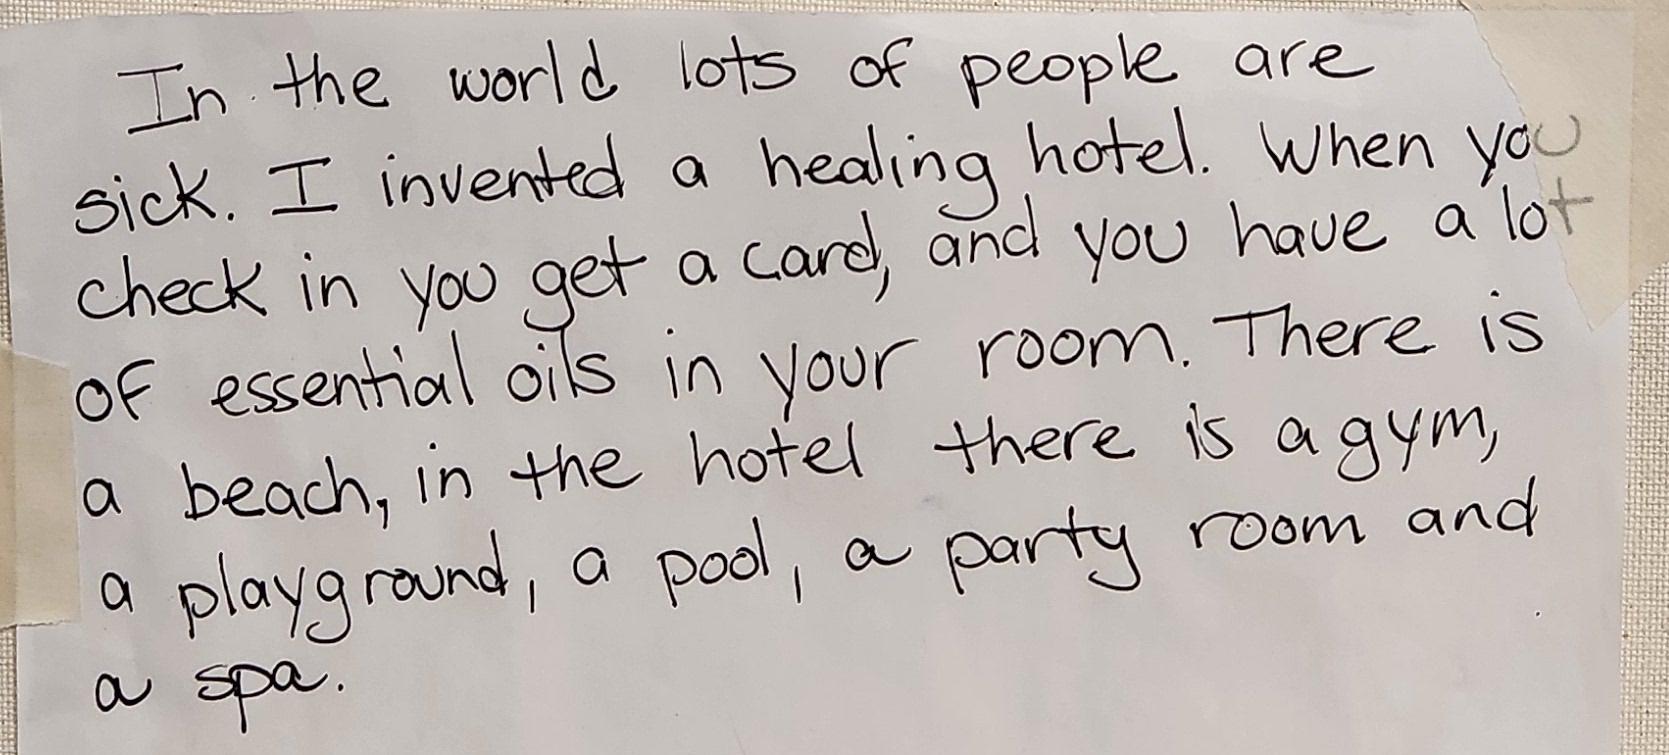 In the world lots of people are
sick. I invented a healing hotel. When you
check in you get a card, and you have a lot
of essential oils in your room. There is
a beach, in the hotel there is a gym,
a playground, a pool, a party room and
a spa.